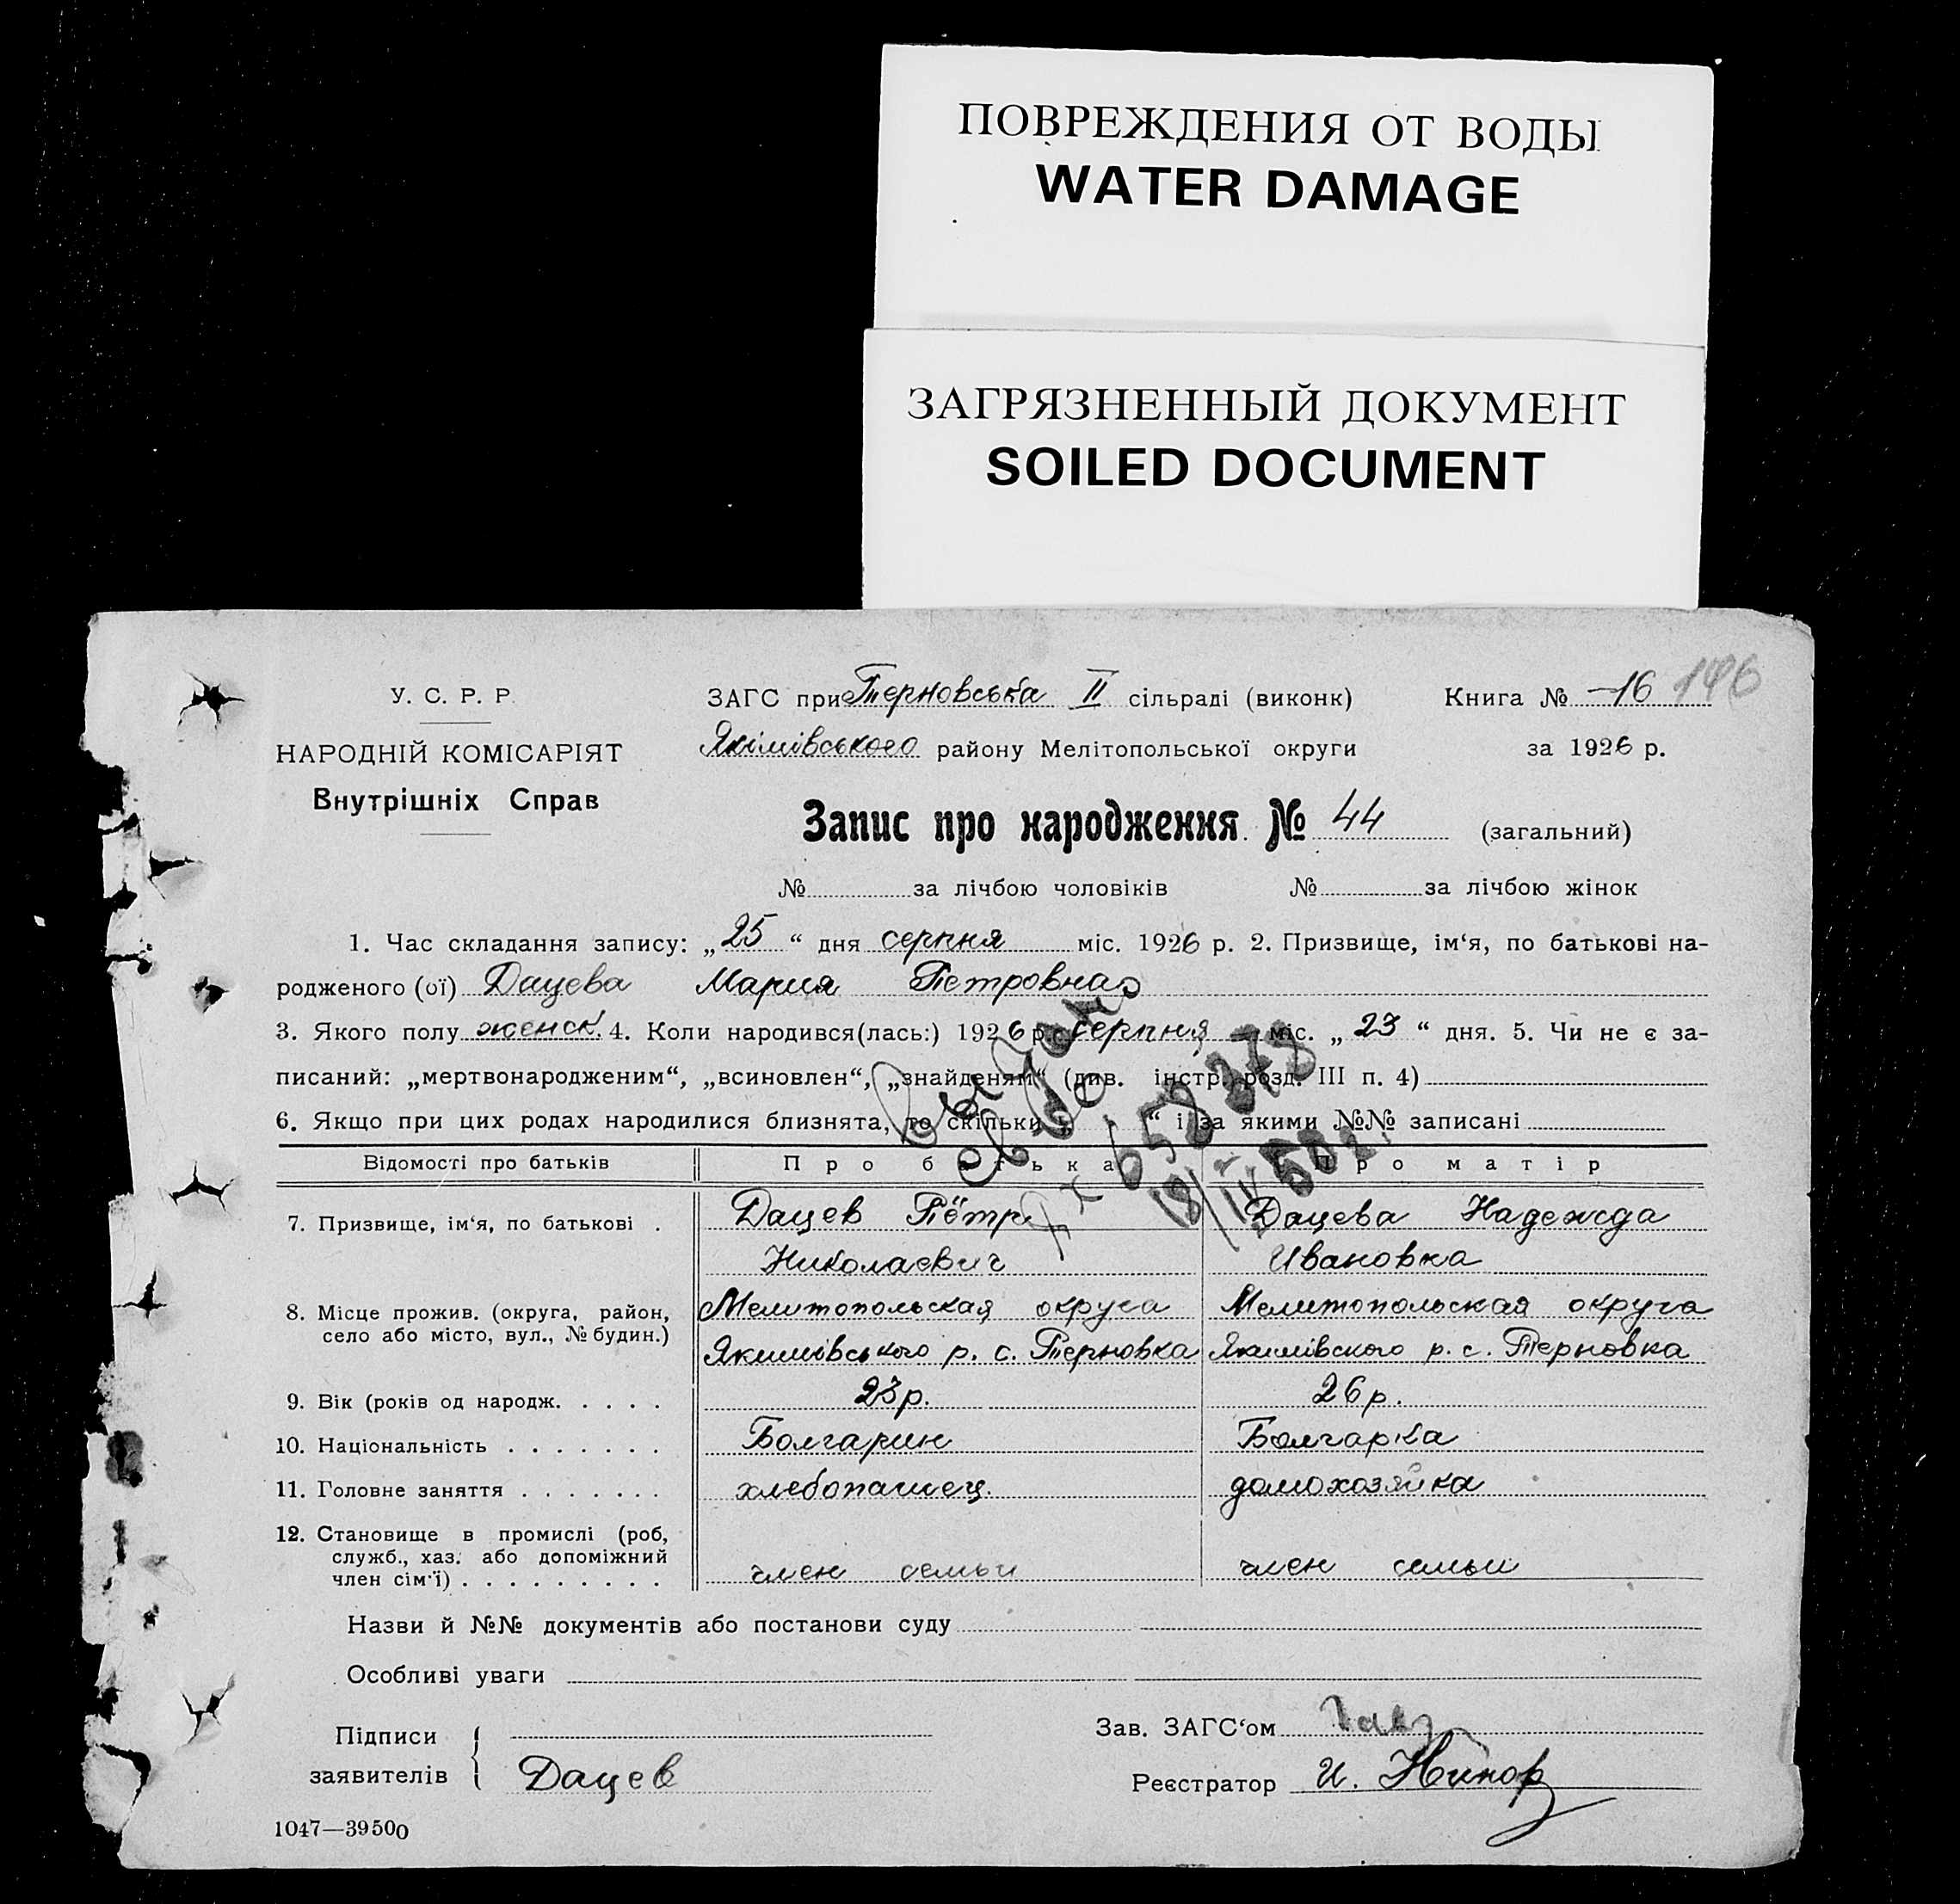 ПОВРЕЖДЕНИЯ ОТ ВОДЫ
WATER DAMAGE
ЗАГРЯЗНЕННЫЙ ДОКУМЕНТ
SOILED DOCUMENT
У. С. Р. Р.
НАРОДНІЙ КОМІСАРІЯТ
Внутрішніх Справ
ЗАГС при Терновська II сільраді (виконк)
Якімівського району Мелітопольської округи
Книга № 16 146
за 1926 р.
Запис про народження № 44 (загальний)
№ за лічбою чоловіків № за лічбою жінок
1. Час складання запису: „25“ дня серпня міс. 1926 р. 2. Призвище, ім‘я, по батькові на-
родженого (ої) Дацева Мария Петровна
3. Якого полу женск. 4. Коли народився(лась:) 1926 р. серпня міс. „23“ дня. 5. Чи не є за-
писаний: „мертвонародженим“, „всиновлен“, „знайденям“ (див. інстр. розд. III п. 4)
6. Якщо при цих родах народилися близнята, то скільки „ “ і за якими №№ записані
Відомості про батьків Про батька Про матір
7. Призвище, ім‘я, по батькові . Дацев Пётр Дацева Надежда
Николаевич Ивановна
8. Місце прожив. (округа, район, Мелитопольская округа Мелитопольская округа
село або місто, вул., № будин.) Якимівського р. с. Терновка Якимівского р. с. Терновка
9. Вік (років од народж. . . . . 23 р. 26 р.
10. Національність . . . . . . . Болгарин Болгарка
11. Головне заняття . . . . . . . хлебопашец. домохозяйка
12. Становище в промислі (роб,
служб., хаз. або допоміжний
член сім‘ї) . . . . . . . . . член семьи член семьи
Назви й №№ документів або постанови суду
Особливі уваги
Підписи
заявителів Дацев
Зав. ЗАГС‘ом
Реєстратор И.
1047—39500